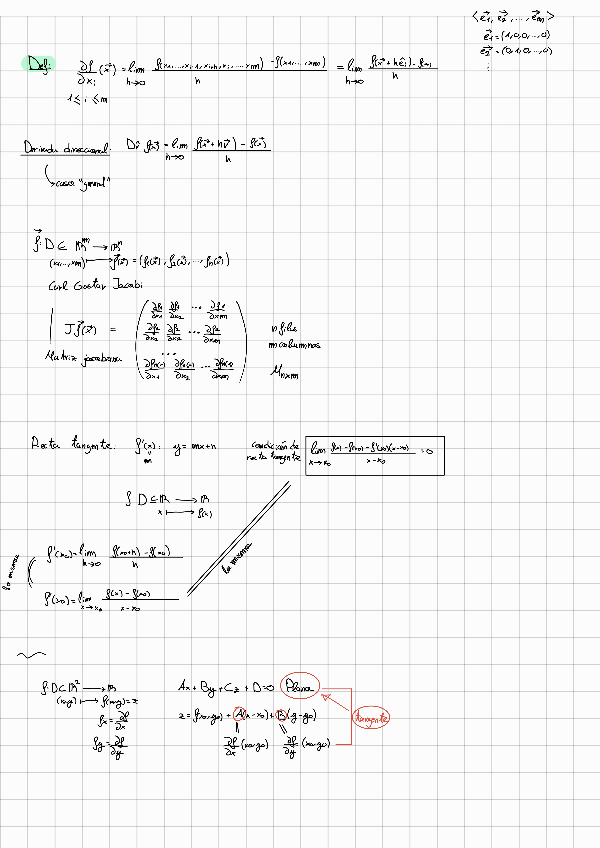 ⟨e⃗₁, e⃗₂, ..., e⃗ₘ⟩
e⃗₁ = (1,0,0,...,0)
e⃗₂ = (0,1,0,...,0)
⋮
Def: ∂f/∂xᵢ (x⃗) = lim h→0 (f(x₁,...,xᵢ₋₁, xᵢ+h, xᵢ,...,xₘ) - f(x₁,...,xₘ))/h = lim h→0 (f(x⃗+hêᵢ) - f(x))/h
1 ≤ i ≤ m
Derivada direccional: Dv̂ f(x⃗) = lim h→0 (f(x⃗+hv⃗) - f(x⃗))/h
caso "general"
f⃗: D ⊆ ℝᵐ → ℝⁿ
(x₁,...,xₘ) ↦ f⃗(x⃗) = (f₁(x⃗), f₂(x⃗), ..., fₙ(x⃗))
Carl Gostav Jacobi
Jf⃗(x⃗) = ( ∂f₁/∂x₁ ∂f₁/∂x₂ ... ∂f₁/∂xₘ
∂f₂/∂x₁ ∂f₂/∂x₂ ... ∂f₂/∂xₘ
...
∂fₙ(x)/∂x₁ ∂fₙ(x)/∂x₂ ... ∂fₙ(x)/∂xₘ )
n filas
m columnas
Mₙₓₘ
Matriz jacobiana
Recta tangente: f'(x) y = mx+n
m
condición de
recta tangente
lim x→x₀ (f(x) - f(x₀) - f'(x₀)(x-x₀))/(x-x₀) = 0
f D ⊆ ℝ → ℝ
x ↦ f(x)
f'(x₀) = lim h→0 (f(x₀+h) - f(x₀))/h
f'(x₀) = lim x→x₀ (f(x) - f(x₀))/(x-x₀)
lo mismo
lo mismo
f D ⊂ ℝ² → ℝ
(x,y) ↦ f(x,y) = z
fx = ∂f/∂x
fy = ∂f/∂y
Ax + By + Cz + D = 0 Plano
z = f(x₀,y₀) + A(x-x₀) + B(y-y₀)
∂f/∂x (x₀,y₀) ∂f/∂y (x₀,y₀)
tangente